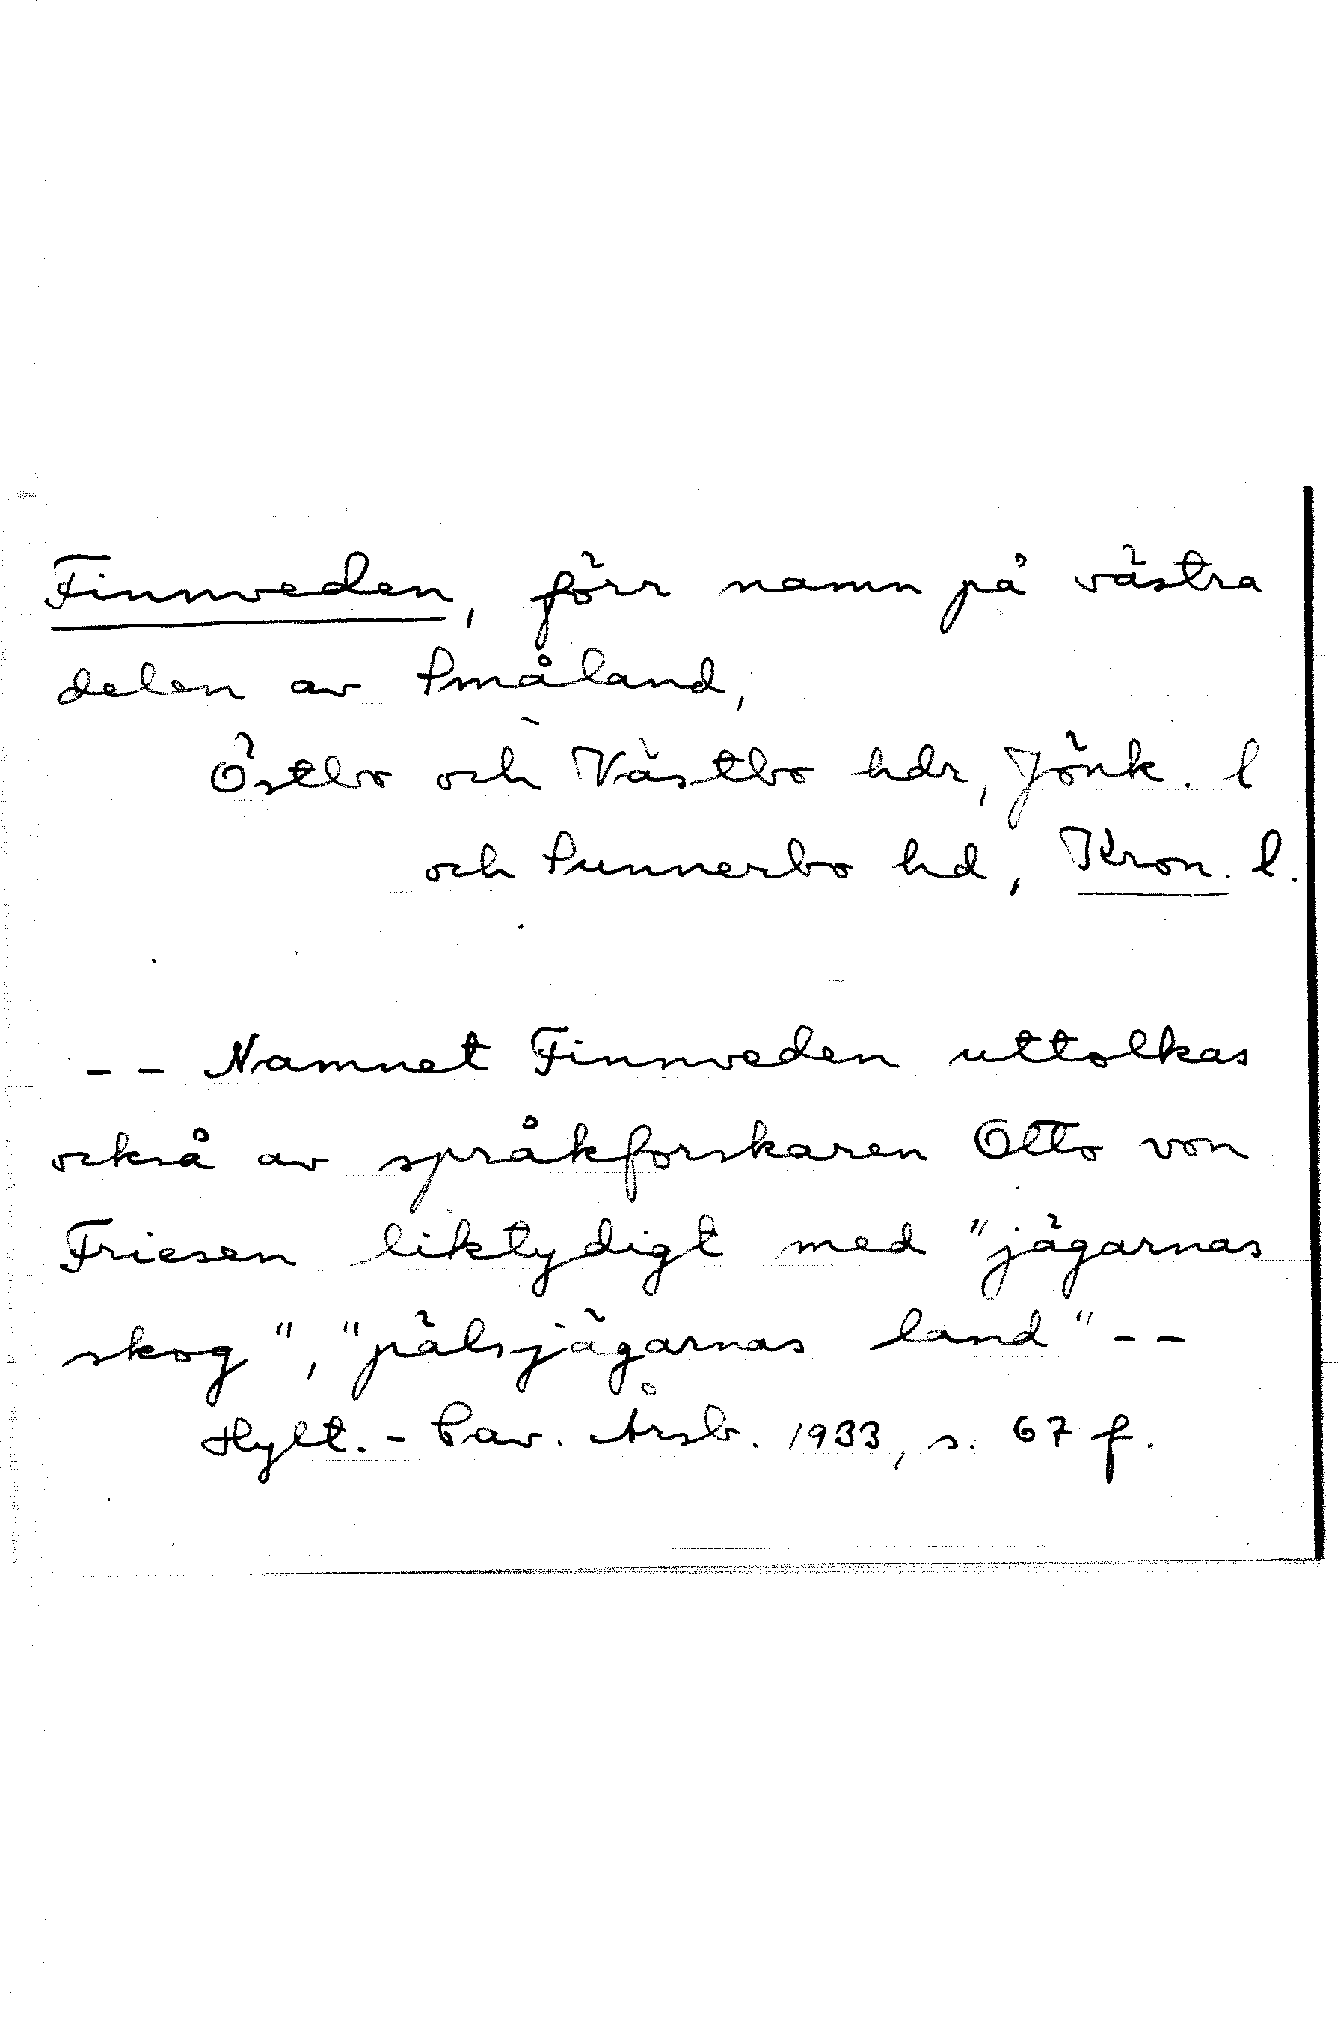 Finnveden, förr namn på västra
delen av Småland,
Östbo och Västbo hdr, Jönk. l
och Sunnerbo hd, Kron. l.
-- Namnet Finnveden uttolkas
också av språkforskaren Otto von
Friesen liktydigt med "jägarnas
skog", "pälsjägarnas land" --
Hylt.-Cav. Årsb. 1933, s. 67 f.